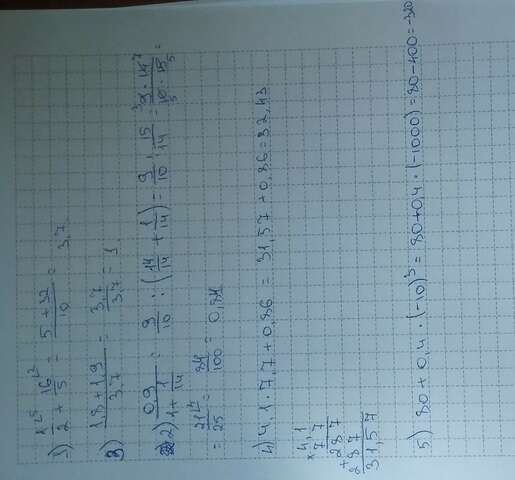 1) 1/2 + 16/5 = (5 + 32)/10 = 3,7
3) (1,8 + 1,9)/3,7 = 3,7/3,7 = 1
2) 0,9/(1 + 1/14) = 9/10 : (14/14 + 1/14) = 9/10 : 15/14 = (9 · 14)/(10 · 15) =
= 21/25 = 84/100 = 0,84
4) 4,1 · 7,7 + 0,86 = 31,57 + 0,86 = 32,43
× 4,1
7,7
+ 287
287
31,57
5) 80 + 0,4 · (-10)³ = 80 + 0,4 · (-1000) = 80 - 400 = -320